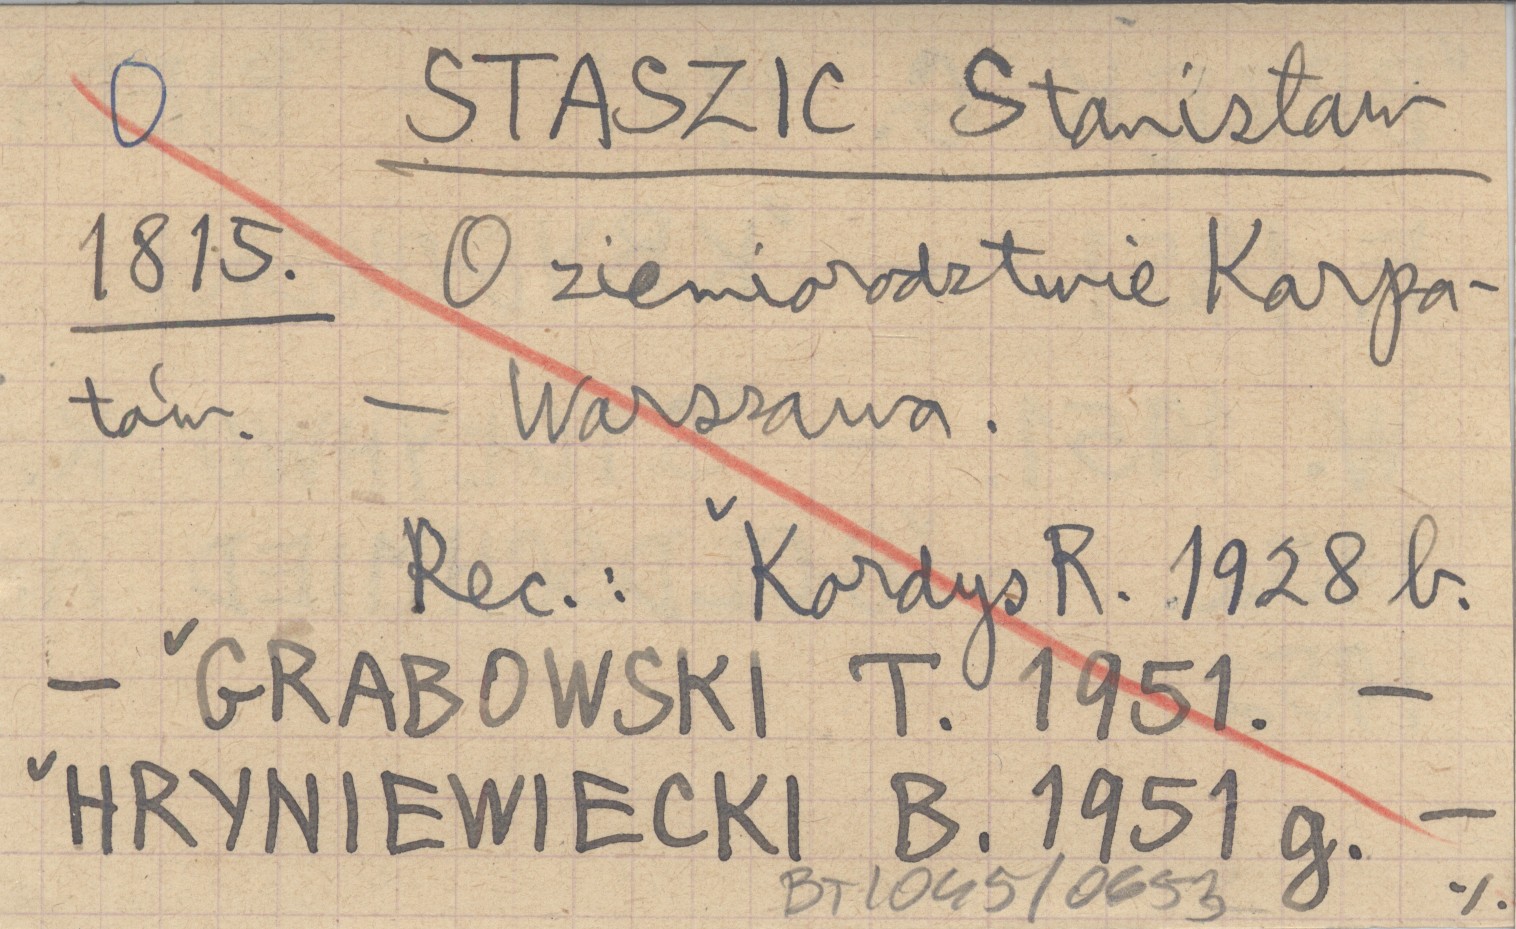 O STASZIC Stanisław
1815. O ziemiorodztwie Karpa-
tów. — Warszawa.
Rec.: ˇKordys R. 1928 b.
— ˇGRABOWSKI T. 1951. —
ˇHRYNIEWIECKI B. 1951 g. —
BT/045/0653 ./.